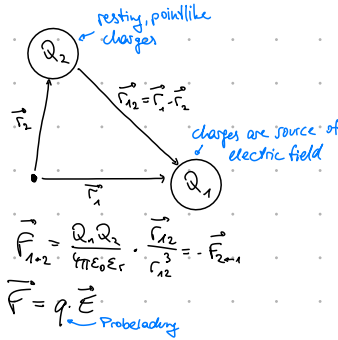 resting, pointlike
charges
Q₂
r⃗₁₂ = r⃗₁ - r⃗₂
r⃗₂
charges are source of
electric field
Q₁
r⃗₁
F⃗₁→₂ = Q₁Q₂ / 4πε₀εᵣ · r⃗₁₂ / r₁₂³ = - F⃗₂→₁
F⃗ = q · E⃗
Probeladung